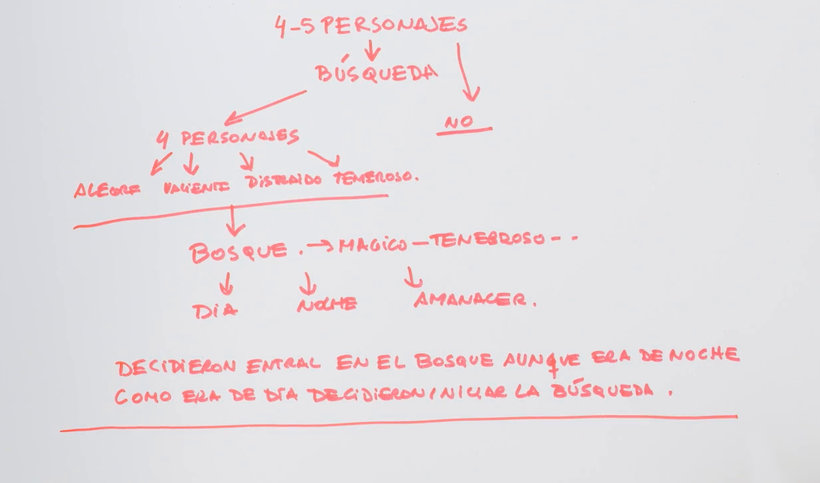 4-5 PERSONAJES
BÚSQUEDA
NO
4 PERSONAJES
ALEGRE VALIENTE DISTRAIDO TEMEROSO.
BOSQUE. → MAGICO - TENEBROSO - -
DIA NOCHE AMANACER.
DECIDIERON ENTRAL EN EL BOSQUE AUNQUE ERA DE NOCHE
COMO ERA DE DÍA DECIDIERON INICIAR LA BÚSQUEDA.